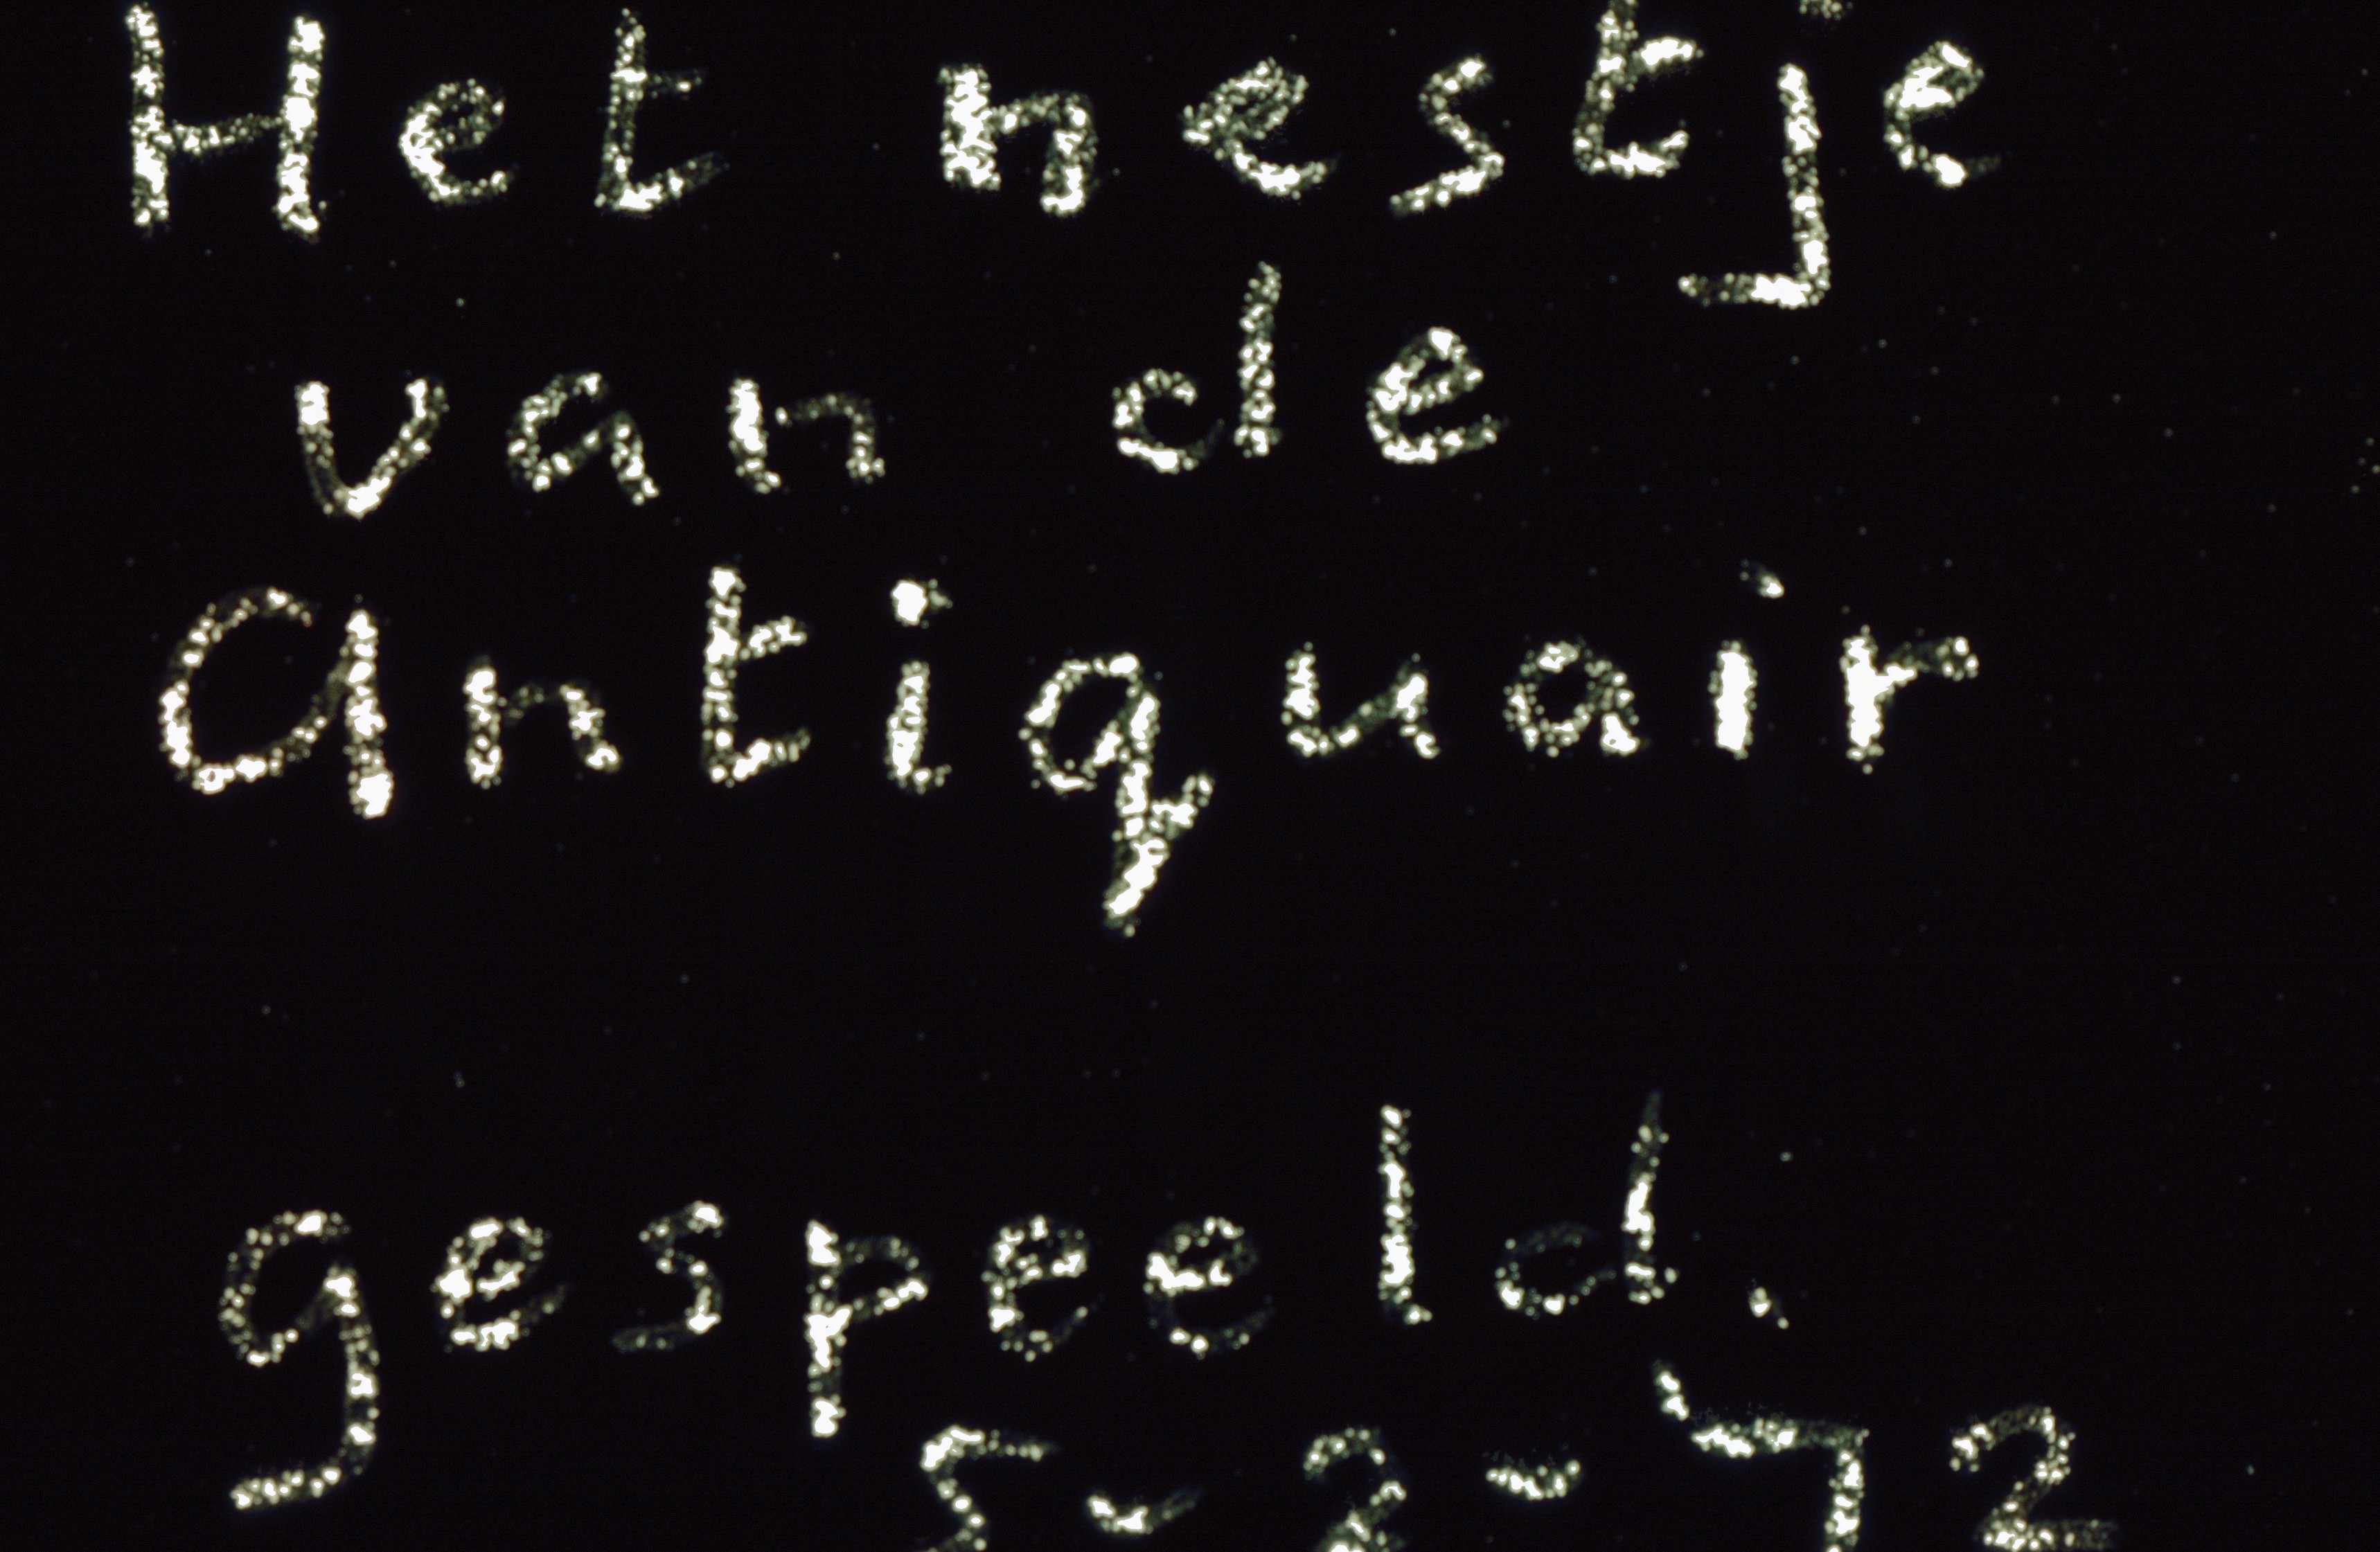 Het nestje
van de
antiquair
gespeeld.
5-2-72